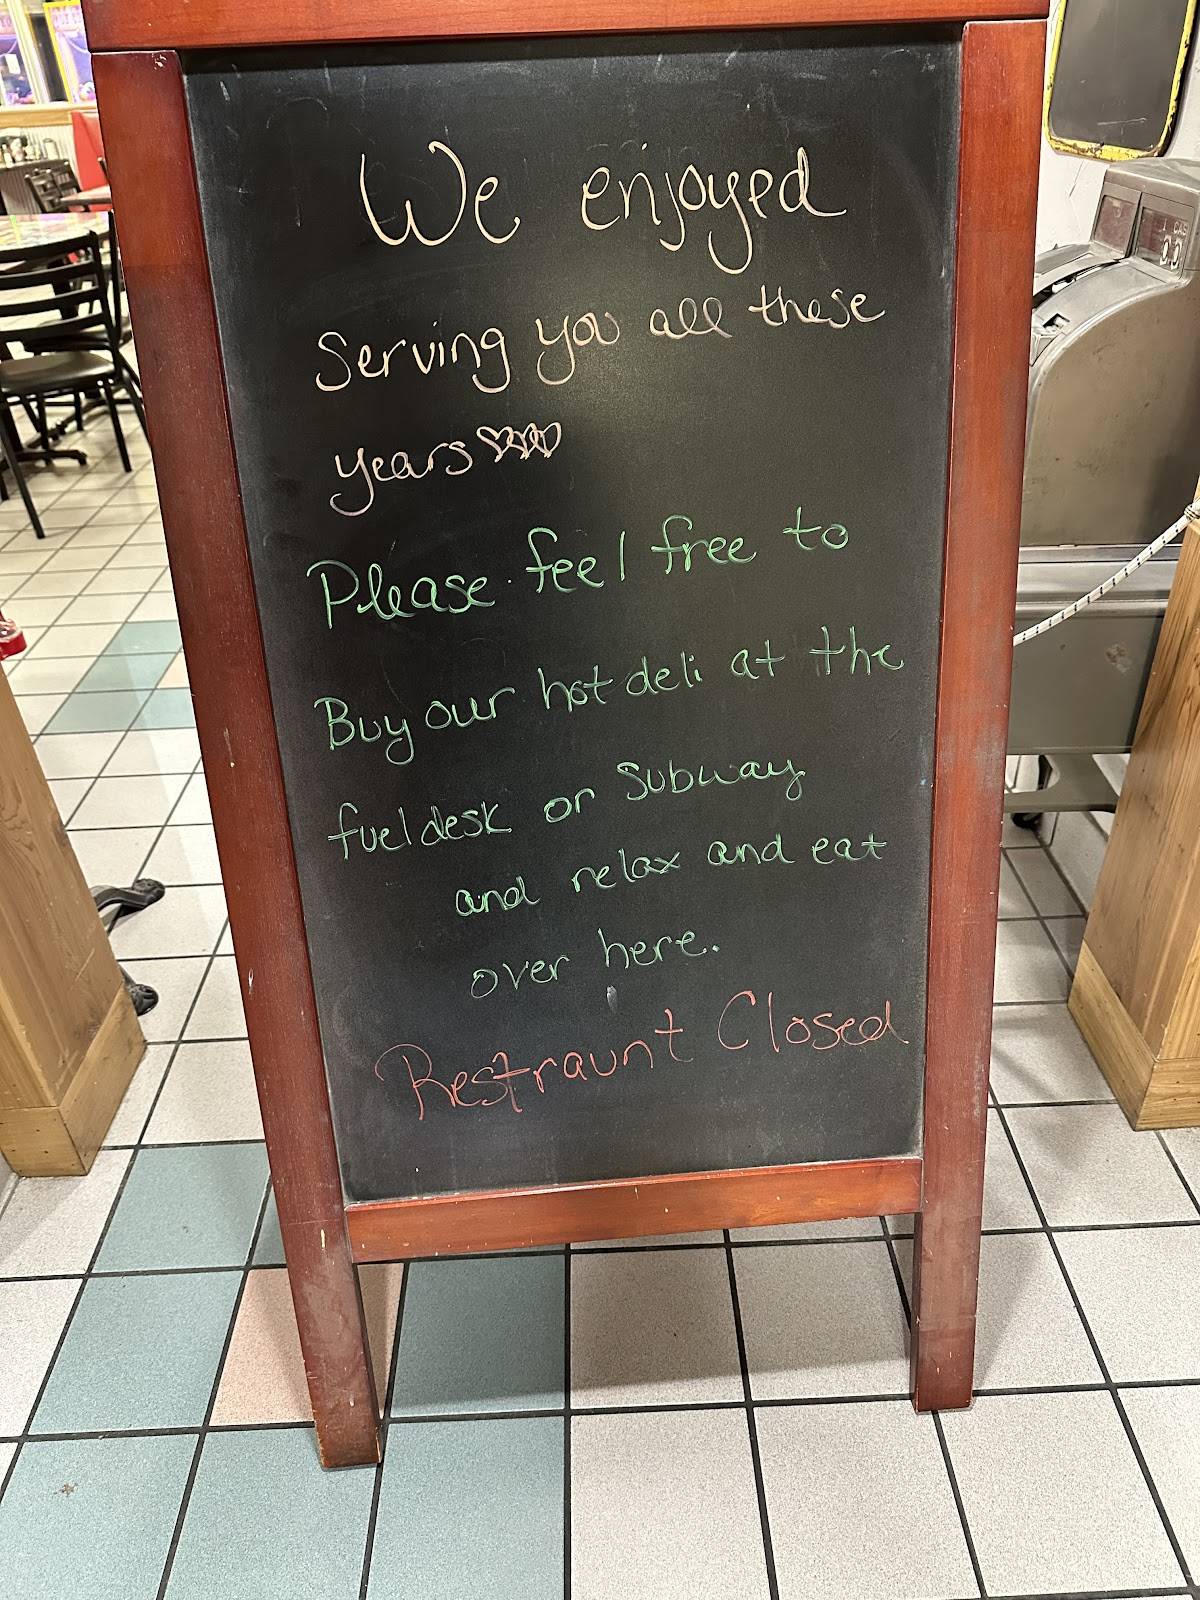 We enjoyed
Serving you all these
years ♡♡♡♡
Please feel free to
Buy our hot deli at the
fuel desk or Subway
and relax and eat
over here.
Restraunt Closed